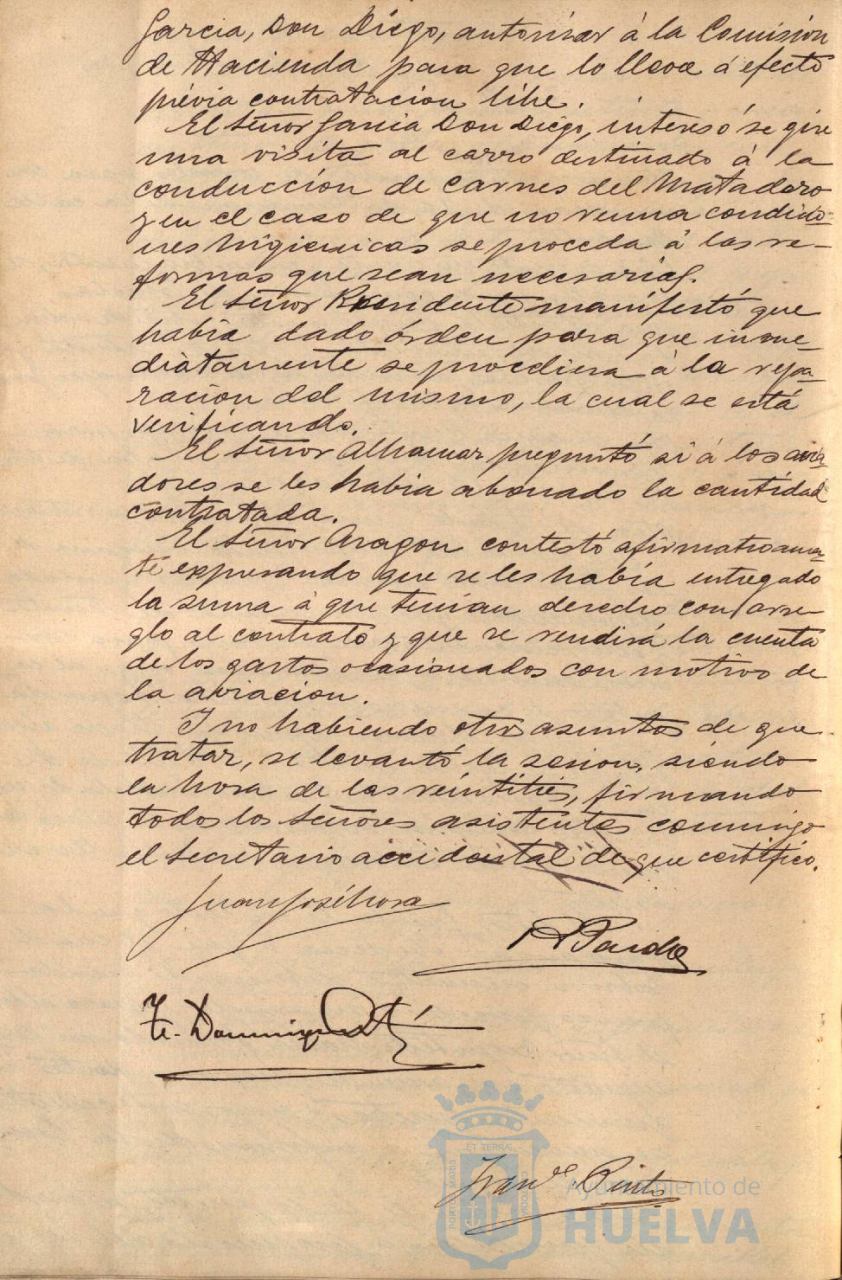 Garcia, Don Diego, autorizar á la Comisión
de Hacienda para que lo lleve á efecto
prévia contratacion libe.
El Señor Garcia Don Diego, interesó se gire
una visita al carro destinado á la
conducción de carnes del Matadero
y en el caso de que no reuna condicio-
nes higienicas se proceda á las re-
formas que sean necesarias.
El Señor Presidente manifestó que
habia dado órden para que inme-
diatamente se procediera á la repa-
racion del mismo, la cual se está
verificando.
El Señor Alhamar preguntó si á los avia-
dores se les habia abonado la cantidad
contratada.
El Señor Aragon contestó afirmativamen-
te expresando que se les habia entregado
la suma á que tenian derecho con arre-
glo al contrato y que se rendirá la cuenta
de los gastos ocasionados con motivo de
la aviacion.
Y no habiendo otros asuntos de que
tratar, se levantó la sesion, siendo
la hora de las veintitres, firmando
todos los Señores asistentes conmigo
el Secretario accidental de que certifico.
Juan José
R Pardo
Fr. Dominguez
Franco Pinto
ET TERRAE
PORTUS MARIS
CUSTODIA
Ayuntamiento de
HUELVA